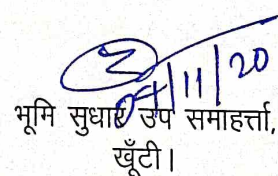 04/11/20
भूमि सुधार उप समाहर्त्ता,
खूँटी।